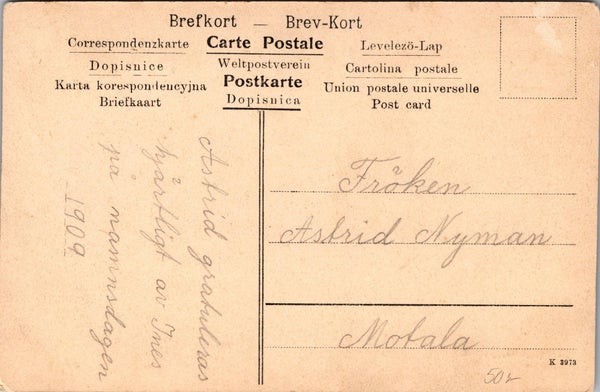 Brefkort — Brev-Kort
Correspondenzkarte Carte Postale Levelező-Lap
Dopisnice Weltpostverein Cartolina postale
Karta korespondencyjna Postkarte Union postale universelle
Briefkaart Dopisnica Post card
Astrid gratuleras
hjärtligt av Ines
på namnsdagen
1909
Fröken
Astrid Nyman
Motala
K 3973
50r